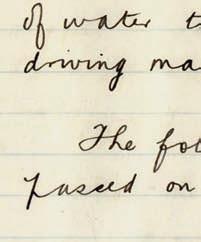 of water t
driving ma
The fol
passed on